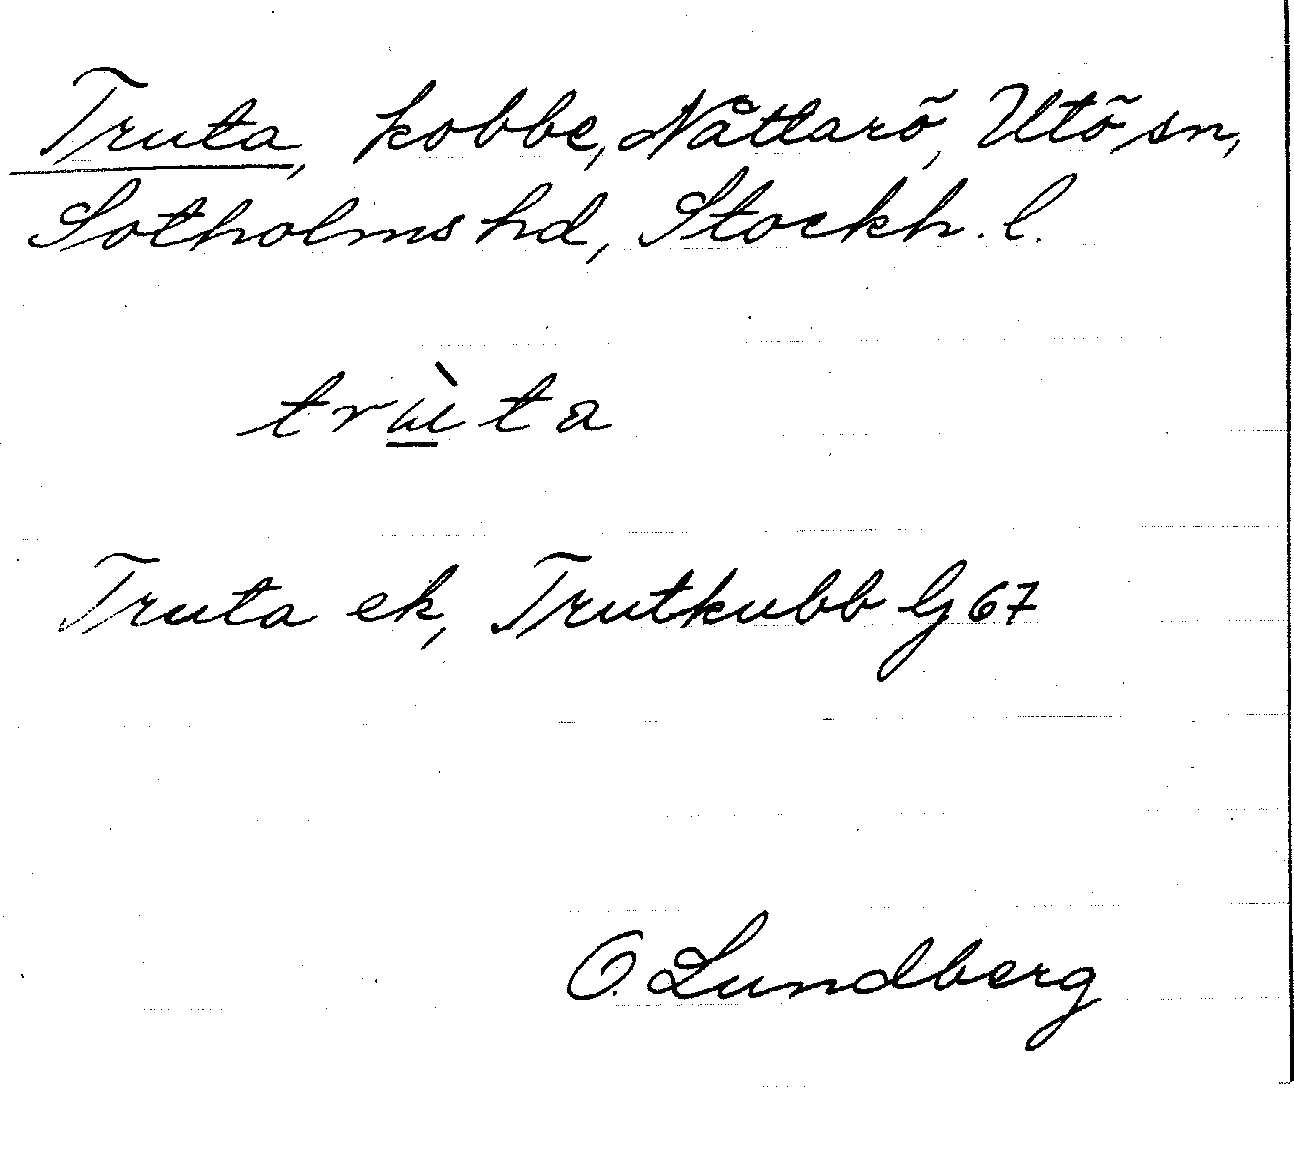 Truta, kobbe, Nåttarö, Utö sn,
Sotholms hd, Stockh. l.
trɯ̀ta
Truta ek, Trutkubb lg 67
O. Lundberg